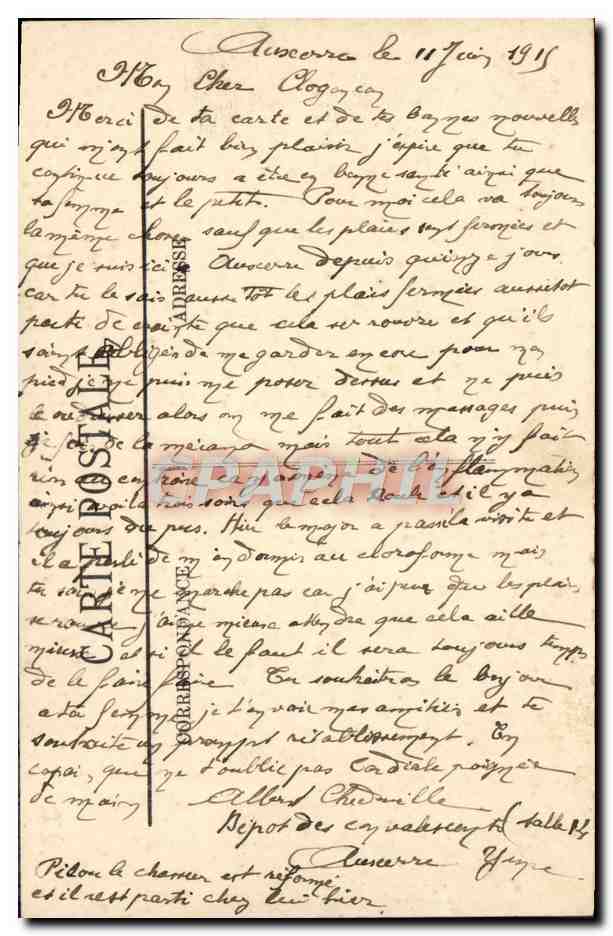 Auxerre le 11 Juin 1915
Mon Cher
Merci de ta carte et de tes bonnes nouvelles
qui m'ont fait bien plaisir j'espire que tu
continue toujours a être en bonne santé ainsi que
ta femme et le petit. Pour moi cela va toujours
la même chose sauf que les plaies sont fermées et
que je suis ici a Auxerre depuis quinze jours
car tu le sais aussitot les plais fermées aussitot
parti de crainte que cela se rouvre et qu'ils
soint obligés de me garder encore pour mon
pied je ne puis me poser dessus et ne puis
le redresser alors on me fait des massages puis
je fais de la mécano mais tout cela n'y fait
rien au contraire ca donne de l'inflammation
ainsi voilà trois soirs que cela coule et il y a
toujours du pus. Hier le major a passé la visite et
il a parlé de m'endormir au cloroforme mais
tu sais je ne marche pas car j'ai peur que les plais
se rouvre j'aime mieux attendre que cela aille
mieux et si il le faut il sera toujours temps
de le faire faire. Tu souhaitras le bonjour
a ta femme je t'envoir mes amitiés et te
souhaite un prompt rétablissement. Ton
copai, que ne t'oublie pas Cordiale poignée
de main
Albert
Dépot des convalescents (Salle
Auxerre Yonne
Pilou le chasseur est réformé
et il est parti chez lui hier.
CARTE POSTALE
CORRESPONDANCE
ADRESSE
CPAPHIL